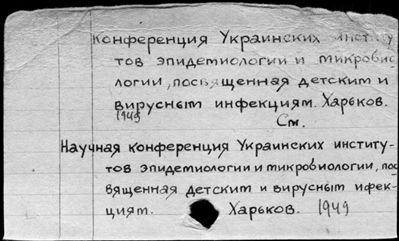 Конференция Украинских институ
тов эпидемиологии и микробио
логии, посвященная детским и
вирусным инфекциям. Харьков.
1949
См.
Научная конференция Украинских институ-
тов эпидемиологии и микробиологии, пос
вященная детским и вирусным ифек-
циям. Харьков. 1949